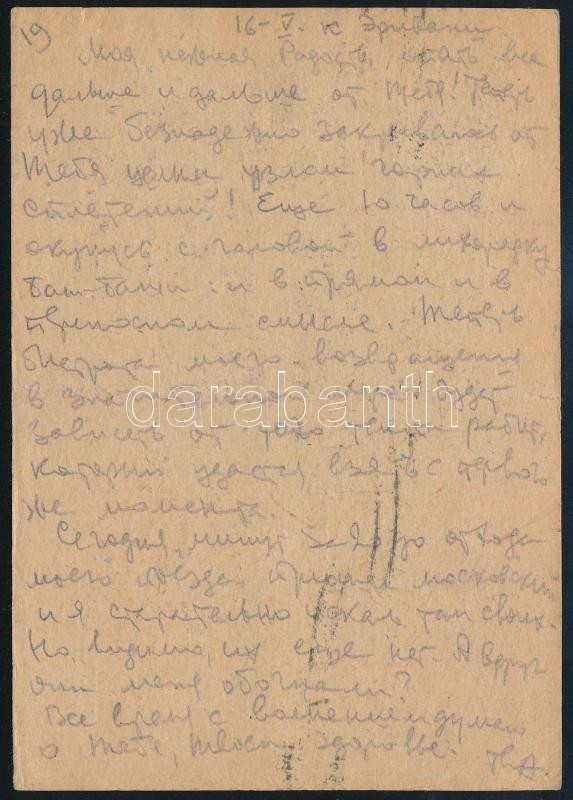 19
16-V. к Эривани
Моя нежная Радость, опять все
дальше и дальше от Тебя! Теперь
уже безнадежно закрываюсь от
Тебя целым узлом горных
сплетений! Еще 10 часов и
окунусь с головой в лихорадку
Баш-Бажи: и в прямом и в
переносном смысле. Теперь
быстрота моего возвращения
в значительной мере будет
зависеть от того темпа работ,
который удастся взять с первого
же момента.
Сегодня, минут за 20 до отхода
моего поезда, пришел московский
и я старательно искал там своих.
Но, видимо, их еще нет. А вдруг
они меня обогнали?
Все время с волнением думаю
о Тебе, Твоем здоровье.
darabanth